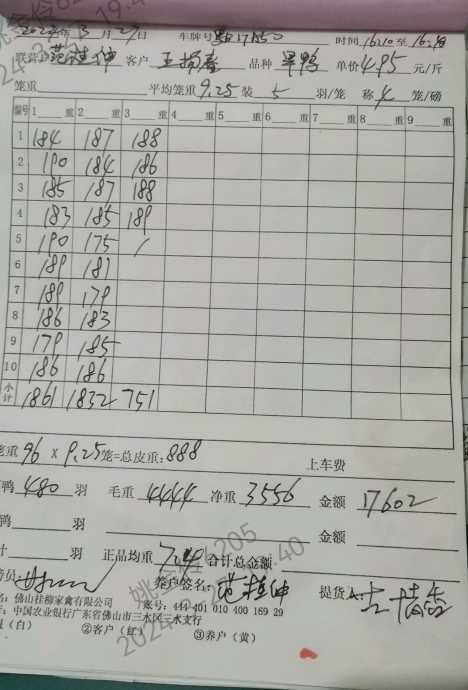 2024年3月27日 车牌号 时间16:10至16:
联营 范桂坤 客户 王 品种 旱鸭 单价4.95元/斤
笼重 平均笼重9.25装5羽/笼 称4笼/磅
编号 1 重 2 重 3 重 4 重 5 重 6 重 7 重 8 重 9 重
1 184 187 188
2 190 184 186
3 185 187 188
4 183 185 189
5 190 175 /
6 189 181
7 189 179
8 186 183
9 179 185
10 186 186
小计 1861 1832 751
笼重96×9.25笼=总皮重:888 上车费
鸭480羽 毛重4444净重3556 金额17602
鸭 羽 金额
计 羽 正品均重7.4 合计总金额
员: 养户签名:范桂坤 提货人:
名:佛山桂柳家禽有限公司 账号:444 401 010 400 169 29
行:中国农业银行广东省佛山市三水区三水支行
(白) ②客户(红) ③养户(黄)